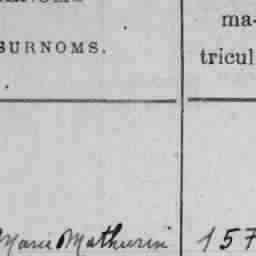 SURNOMS.
ma-
tricul
Marie Mathurin
157